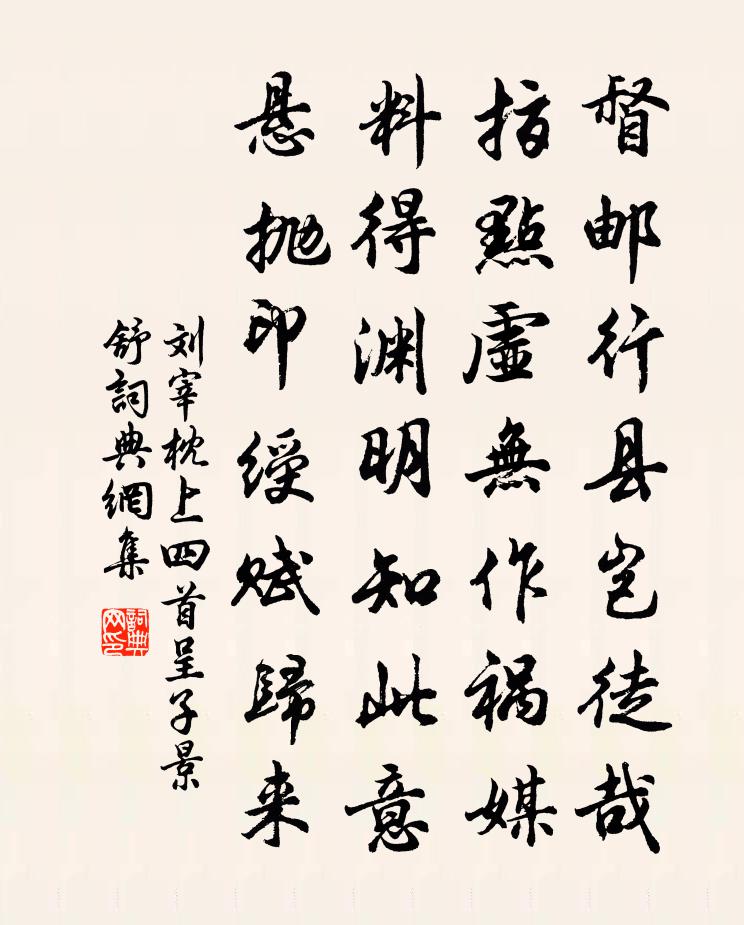 督邮行县岂徒哉
指點虛無作祸媒
料得渊明知此意
悬抛印绶赋歸来
刘宰枕上四首呈子景
舒詞典網集
詞典
网印